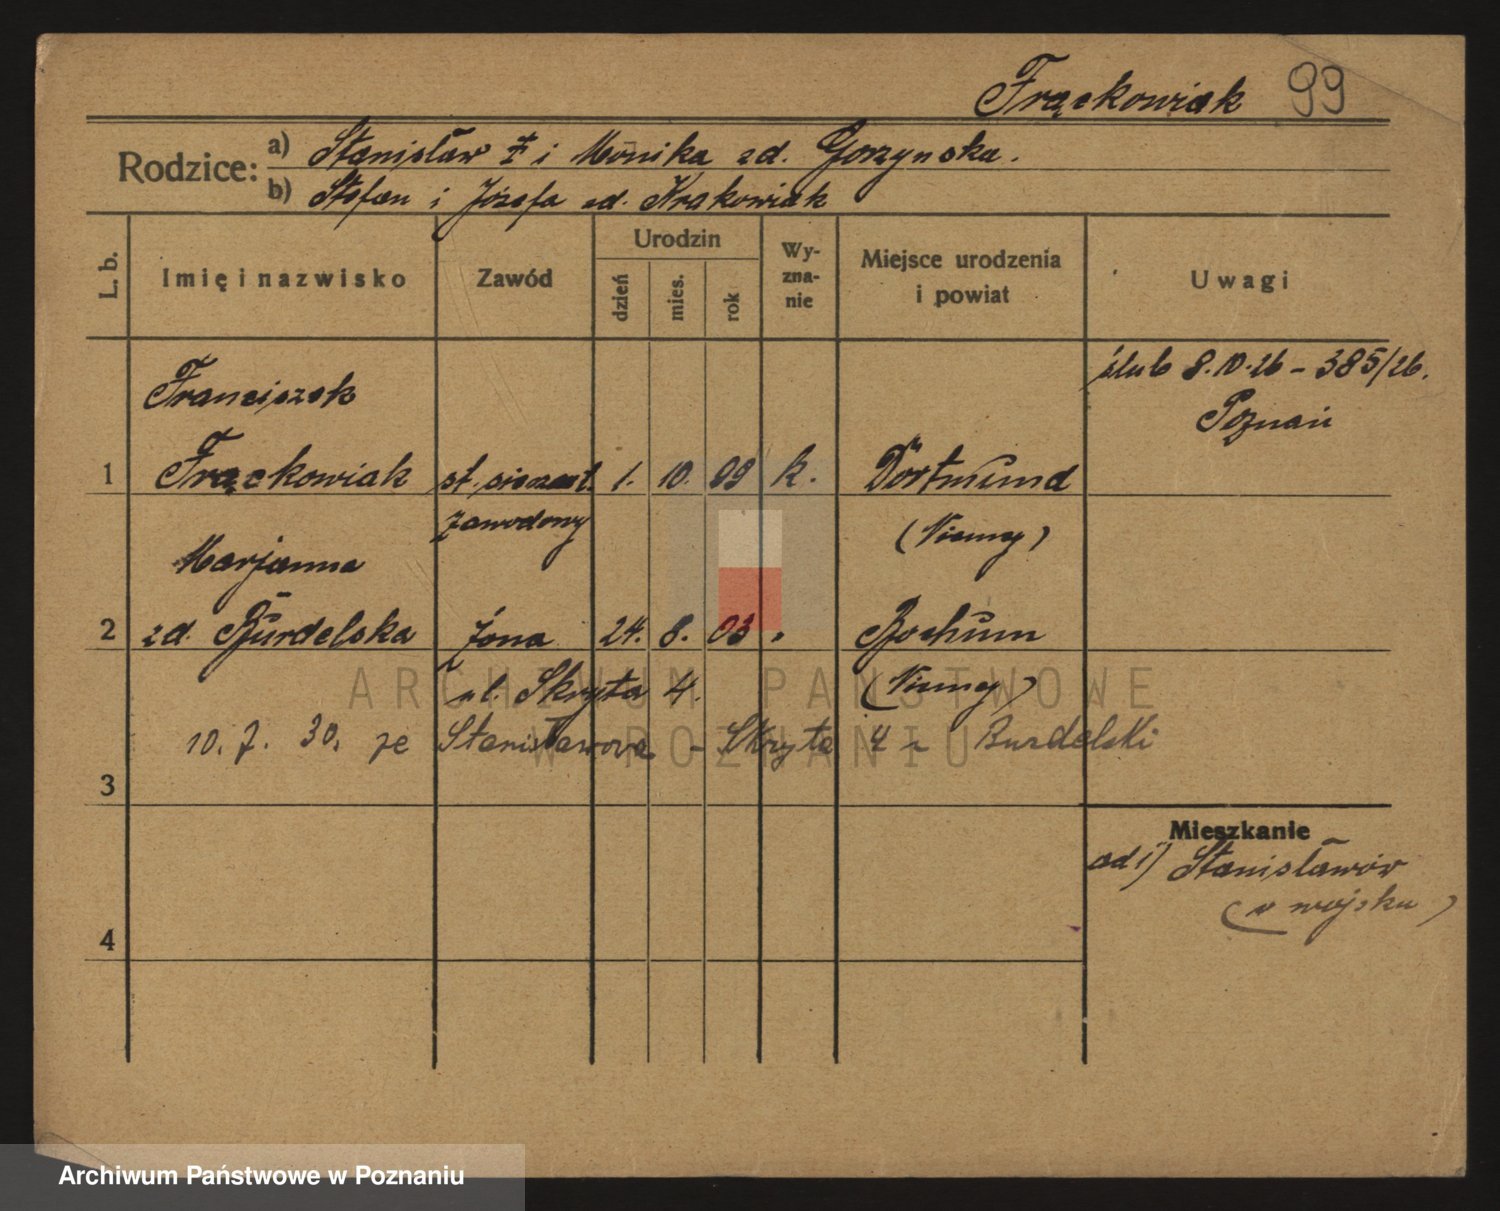 Frąckowiak 99
Rodzice:
a) Stanisław F i Monika zd. Gorzynska.
b) Stefan i Józefa zd. Krakowiak
L. b. Imię i nazwisko Zawód Urodzin dzień mies. rok Wy-zna-nie Miejsce urodzenia i powiat Uwagi
ślub 8.10.26 – 385/26.
Poznań
Franciszek
1 Frąckowiak st. sierżant. 1. 10. 99 k. Dortmund
zawodowy (Niemcy)
Marjanna
2 zd. Burdelska żona 24. 8. 03 " Bochum
ul. Skryta 4. (Niemcy)
10. 7. 30. ze Stanisławowa – Skryta 4 z Burdelski
3
Mieszkanie
ad 1) Stanisławów
(w wojsku)
4
ARCHIWUM PAŃSTWOWE
W POZNANIU
Archiwum Państwowe w Poznaniu